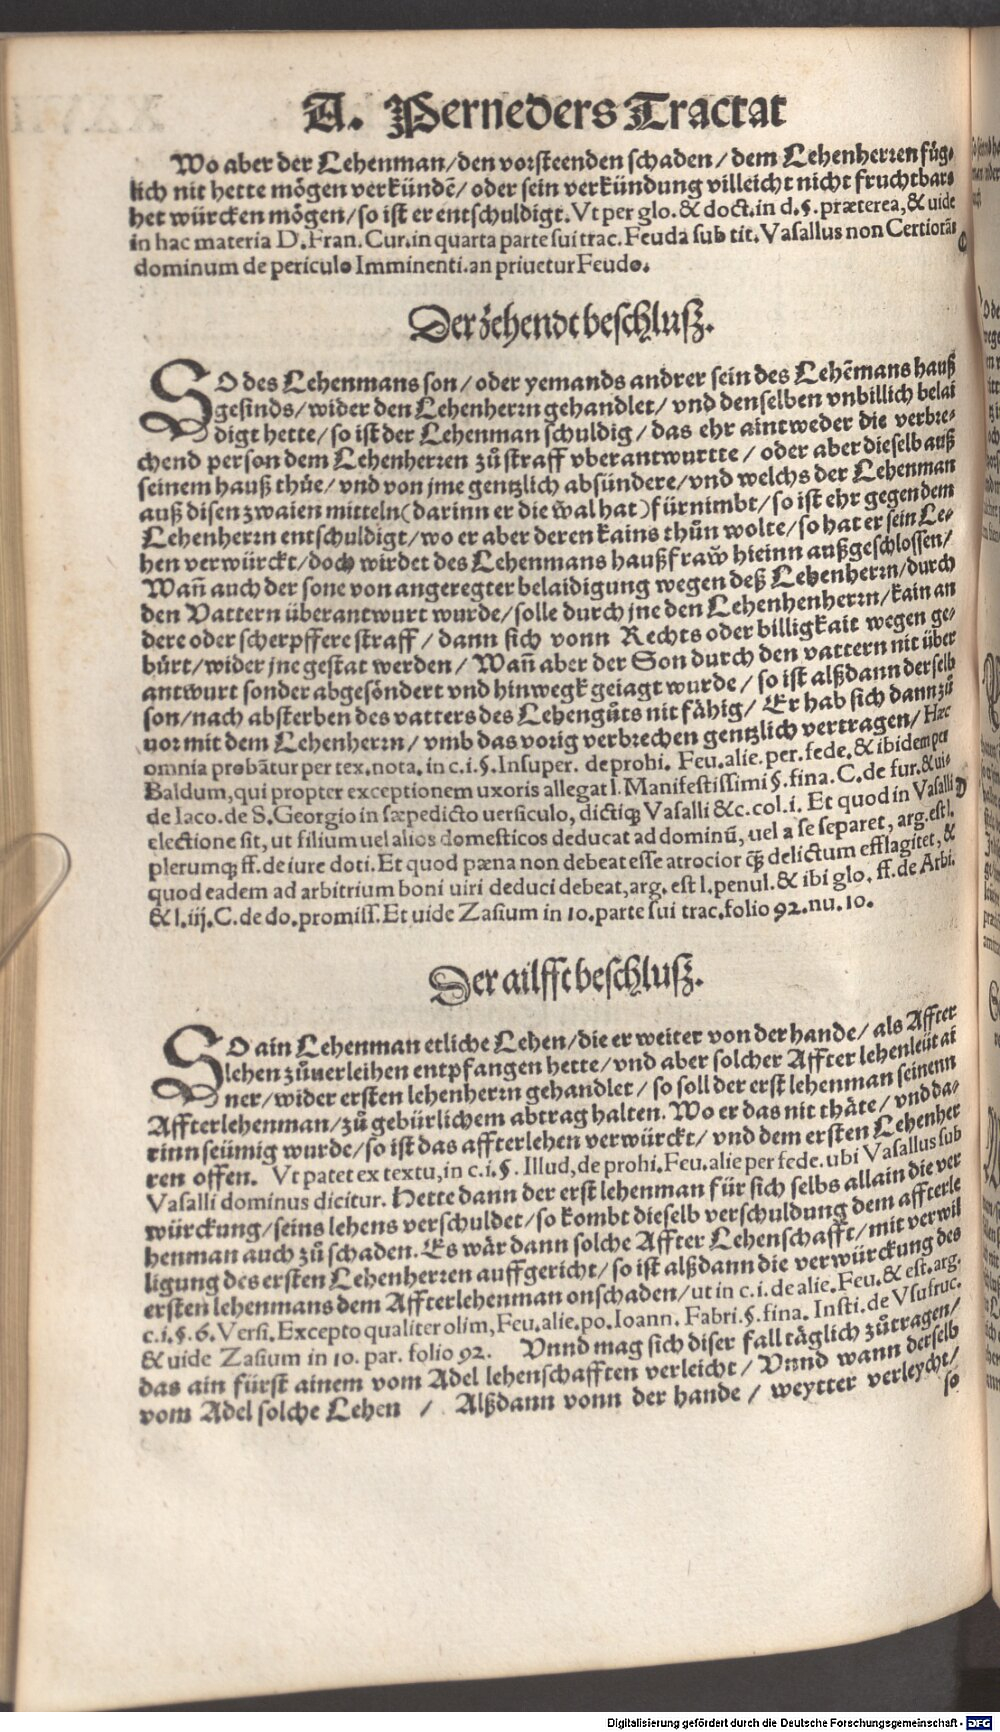 A. Perneders Tractat
Wo aber der Lehenman/den vorsteenden schaden/dem Lehenherren füg-
lich nit hette mögen verkündē/oder sein verkündung villeicht nicht fruchtbars
het würcken mögen/so ist er entschuldigt. Vt per glo. & doct. in d. §. præterea, & uide
in hac materia D. Fran. Cur. in quarta parte sui trac. Feuda sub tit. Vasallus non Certiorās
dominum de periculo Imminenti. an priuetur Feudo.
C
Der zehendt beschlusz.
SO des Lehenmans son/oder yemands andrer sein des Lehēmans hauß
gesinds/wider den Lehenherrn gehandlet/vnd denselben vnbillich belai
digt hette/so ist der Lehenman schuldig/das ehr aintweder die verbre-
chend person dem Lehenherren zů straff vberantwurtte/oder aber dieselb auß
seinem hauß thůe/vnd von jme gentzlich absündere/vnd welchs der Lehenman
auß disen zwaien mitteln(darinn er die wal hat)fürnimbt/so ist ehr gegen dem
Lehenherrn entschuldigt/wo er aber deren kains thůn wolte/so hat er sein Le-
hen verwürckt/doch wirdet des Lehenmans haußfraw hieinn außgeschlossen/
Wañ auch der sone von angeregter belaidigung wegen deß Lehenherrn/durch
den Vattern überantwurt wurde/solle durch jne den Lehenhenherrn/kain an
dere oder scherpffere straff/dann sich vonn Rechts oder billigkait wegen ge-
bürt/wider jne gestat werden/Wañ aber der Son durch den vattern nit über
antwurt sonder abgesöndert vnd hinwegk geiagt wurde/so ist alßdann derselb
son/nach absterben des vatters des Lehengůts nit fähig/Er hab sich dann zů
uor mit dem Lehenherrn/vmb das vorig verbrechen gentzlich vertragen/Hæc
omnia probātur per tex. nota. in c. i. §. Insuper. de prohi. Feu. alie. per. fede. & ibidem per
Baldum, qui propter exceptionem uxoris allegat l. Manifestissimi §. fina. C. de fur. & ui-
de Iaco. de S. Georgio in sæpedicto uersiculo, dictiq; Vasalli &c. col. i. Et quod in Vasalli
D
electione sit, ut filium uel alios domesticos deducat ad dominū, uel a se separet, arg. est l.
plerumq; ff. de iure doti. Et quod pæna non debeat esse atrocior q̃ delictum efflagitet, &
quod eadem ad arbitrium boni uiri deduci debeat, arg. est l. penul. & ibi glo. ff. de Arbi.
& l. iij. C. de do. promiss. Et uide Zasium in 10. parte sui trac. folio 92. nu. 10.
Der ailfft beschlusz.
SO ain Lehenman etliche Lehen/die er weiter von der hande/als Affter
lehen zůuerleihen entpfangen hette/vnd aber solcher Affter lehenleüt ai
ner/wider ersten lehenherrn gehandlet/so soll der erst lehenman seinenn
Affterlehenman/zů gebürlichem abtrag halten. Wo er das nit thäte/vnd da-
rinn seümig wurde/so ist das affterlehen verwürckt/vnd dem ersten Lehenher
ren offen. Vt patet ex textu, in c. i. §. Illud, de prohi. Feu. alie per fede. ubi Vasallus sub
Vasalli dominus dicitur. Hette dann der erst lehenman für sich selbs allain die ver
würckung/seins lehens verschuldet/so kombt dieselb verschuldung dem affterle
henman auch zů schaden. Es wär dann solche Affter Lehenschafft/mit verwil
ligung des ersten Lehenherren auffgericht/so ist alßdann die verwürckung des
ersten lehenmans dem Affterlehenman onschaden/ut in c. i. de alie. Feu. & est. arg.
c. i. §. 6. Versi. Excepto qualiter olim, Feu. alie. po. Ioann. Fabri. §. fina. Insti. de Vsufruc.
& uide Zasium in 10. par. folio 92. Vnnd mag sich diser fall täglich zůtragen/
das ain fürst ainem vom Adel lehenschafften verleicht/Vnnd wann derselb
vom Adel solche Lehen / Alßdann vonn der hande/weytter verleycht/
so
Digitalisierung gefördert durch die Deutsche Forschungsgemeinschaft - DFG